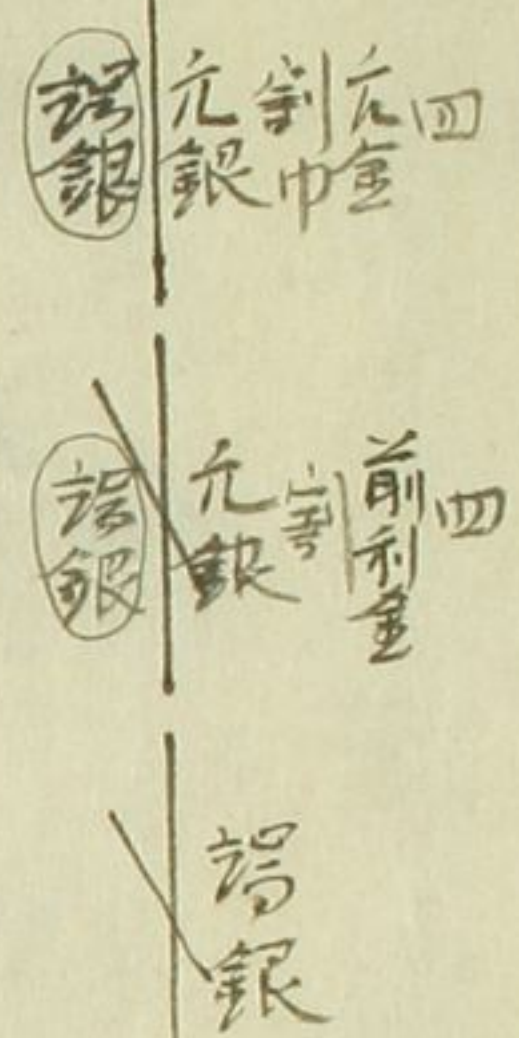 四
元金
割巾
元銀
誤銀
四
前利金
割
元銀
誤銀
誤銀